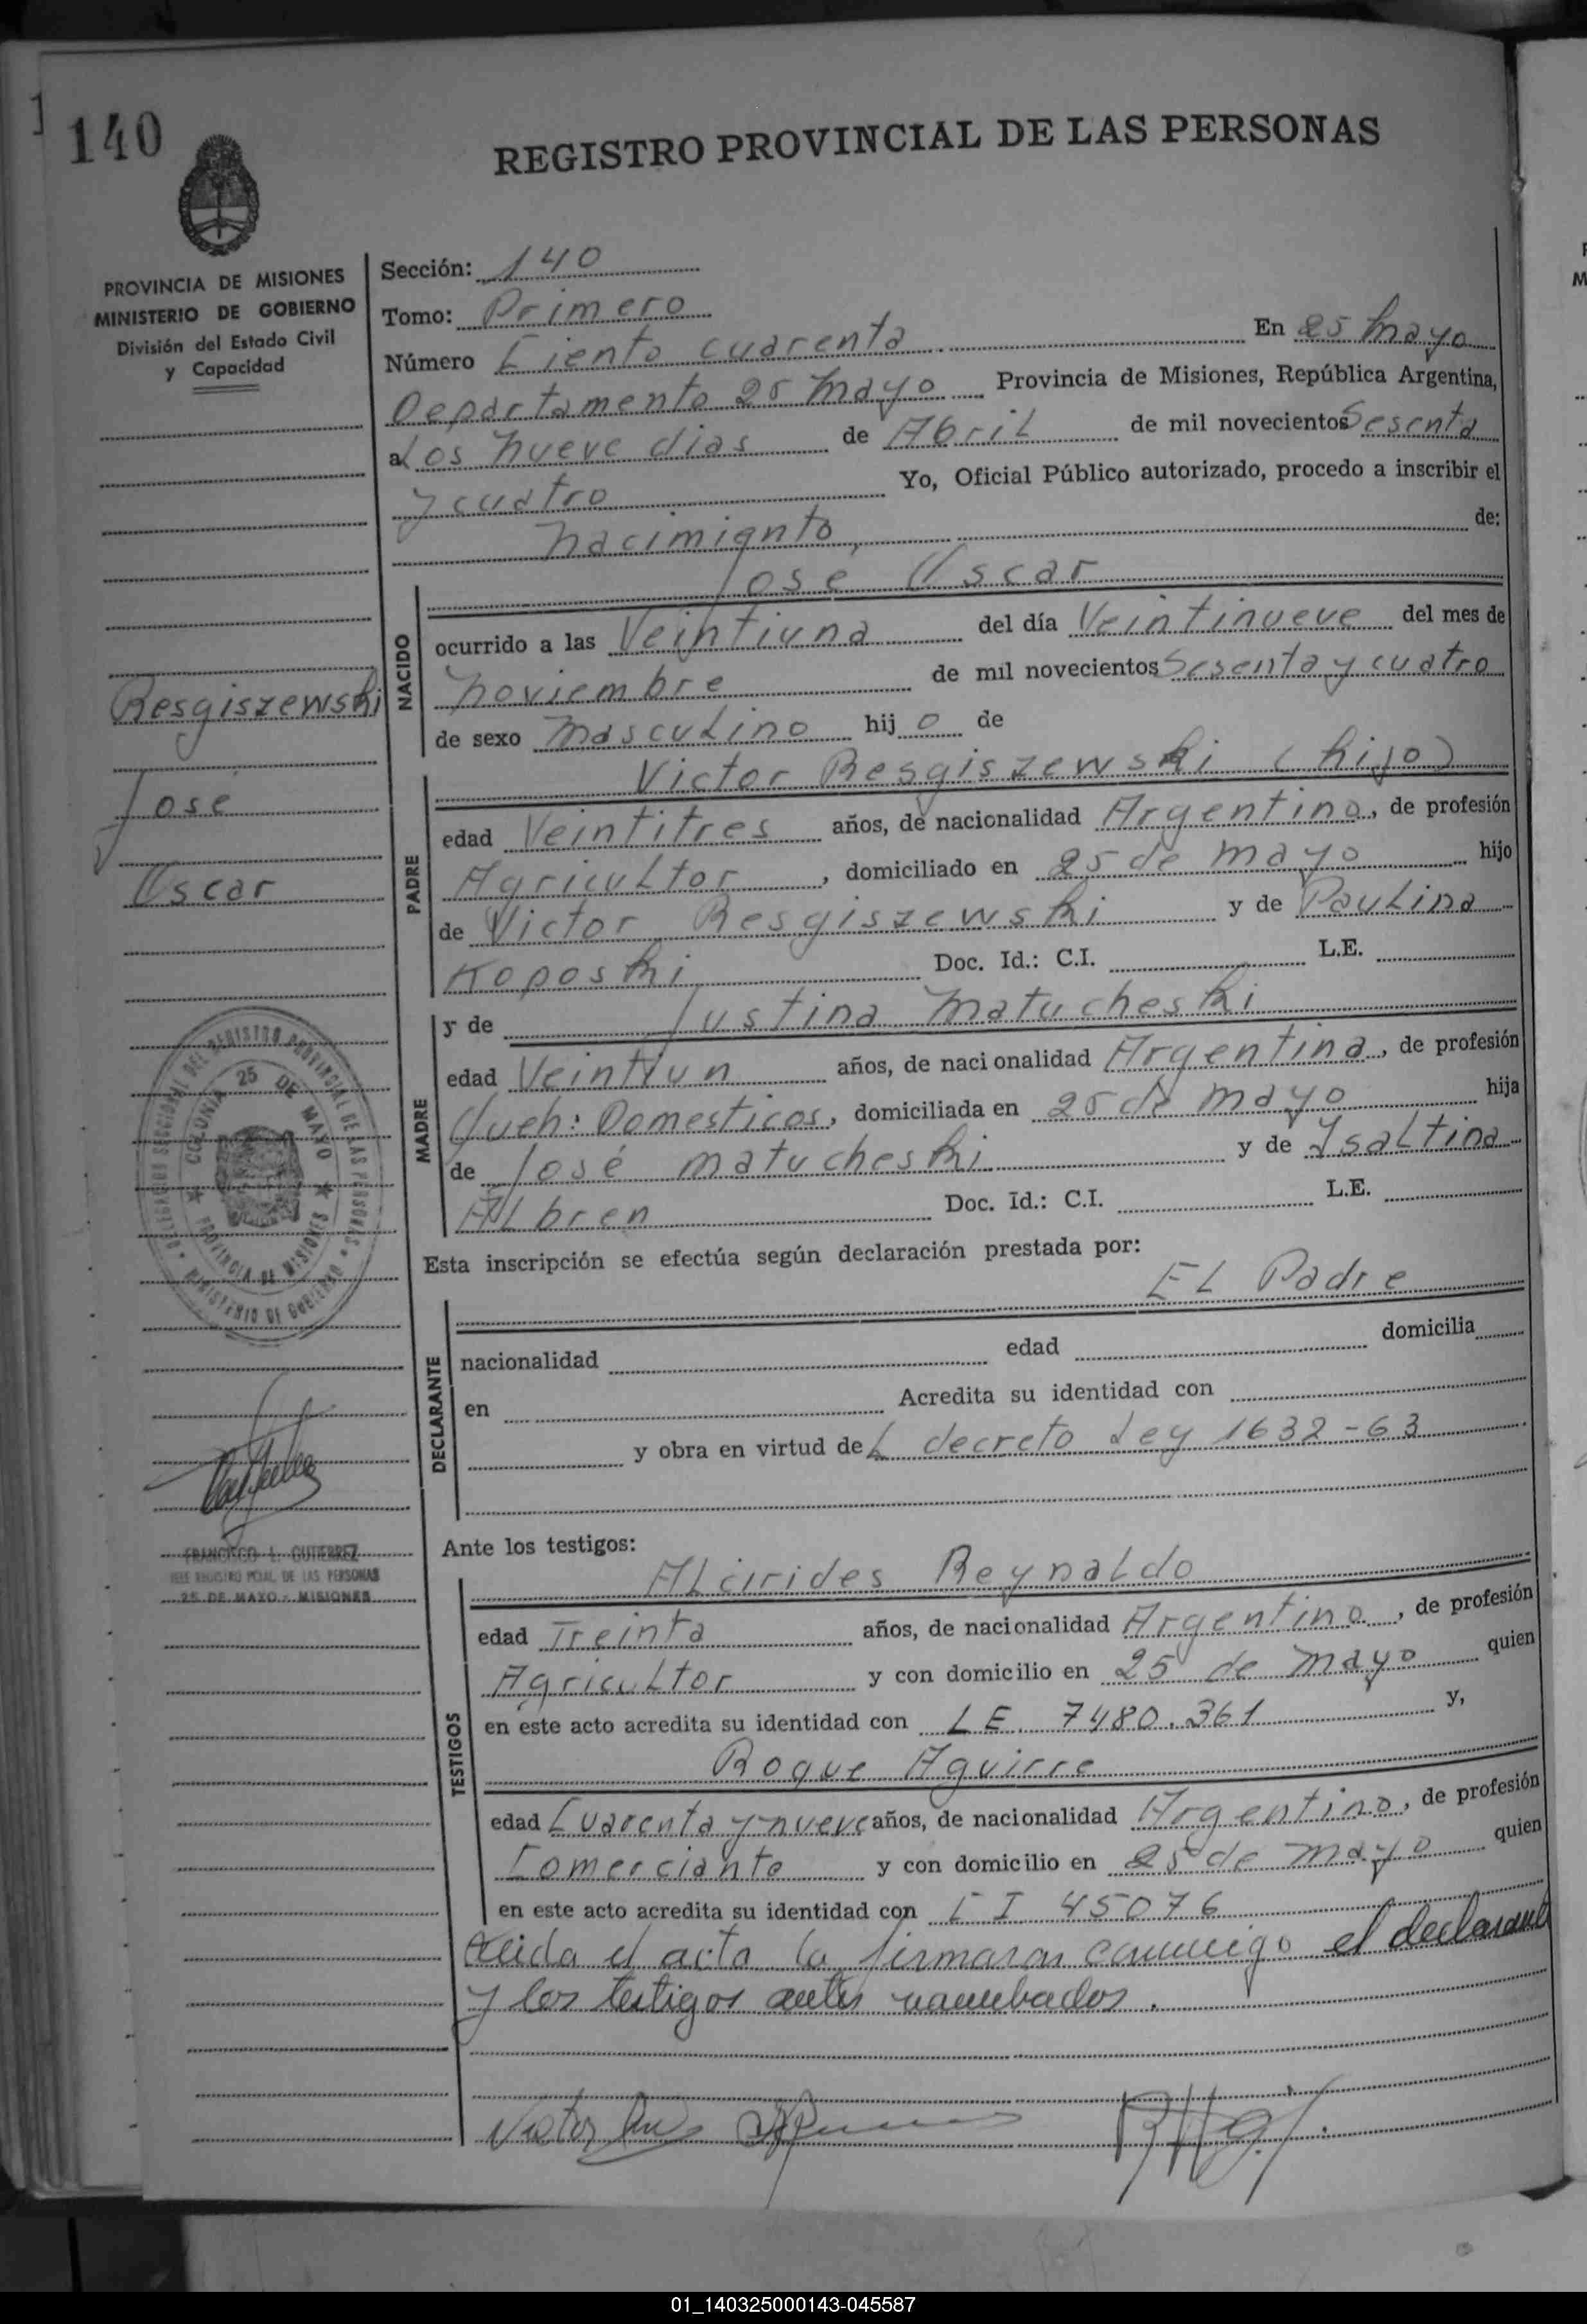 140
REGISTRO PROVINCIAL DE LAS PERSONAS
PROVINCIA DE MISIONES
MINISTERIO DE GOBIERNO
División del Estado Civil
y Capacidad
Sección: 140
Tomo: Primero
Número Ciento cuarenta En 25 Mayo
Departamento 25 Mayo Provincia de Misiones, República Argentina,
a los nueve dias de Abril de mil novecientos Sesenta
y cuatro Yo, Oficial Público autorizado, procedo a inscribir el
nacimiento, de:
José Oscar
NACIDO
ocurrido a las Veintiuna del día Veintinueve del mes de
noviembre de mil novecientos Sesenta y cuatro
de sexo masculino hijo de
Resgiszewski
José
Oscar
Victor Resgiszewski (hijo)
PADRE
edad Veintitres años, de nacionalidad Argentino, de profesión
Agricultor, domiciliado en 25 de mayo hijo
de Victor Resgiszewski y de Paulina
Koposki Doc. Id.: C.I. L.E.
y de Justina Matucheski
MADRE
edad Veintiun años, de nacionalidad Argentina, de profesión
Queh: Domesticos, domiciliada en 25 de mayo hija
de José Matucheski y de Ysaltina
Albren Doc. Id.: C.I. L.E.
DELEGACION SECCIONAL DEL REGISTRO PROVINCIAL DE LAS PERSONAS
COLONIA 25 DE MAYO
PROVINCIA DE MISIONES
MINISTERIO DE GOBIERNO
Esta inscripción se efectúa según declaración prestada por:
El Padre
DECLARANTE
nacionalidad edad domicilia
en Acredita su identidad con
y obra en virtud del decreto Ley 1632-63
FRANCISCO L. GUTIERREZ
JEFE REGISTRO PCIAL. DE LAS PERSONAS
25 DE MAYO - MISIONES
Ante los testigos:
TESTIGOS
Alcirides Reynaldo
edad Treinta años, de nacionalidad Argentino, de profesión
Agricultor y con domicilio en 25 de mayo quien
en este acto acredita su identidad con LE. 7480.361 y,
Roque Aguirre
edad Cuarenta y nueve años, de nacionalidad Argentino, de profesión
Comerciante y con domicilio en 25 de mayo quien
en este acto acredita su identidad con CI 45076
Leida el acta la firmaron conmigo el declarante
y los testigos antes nombrados.
Victor
01_140325000143-045587